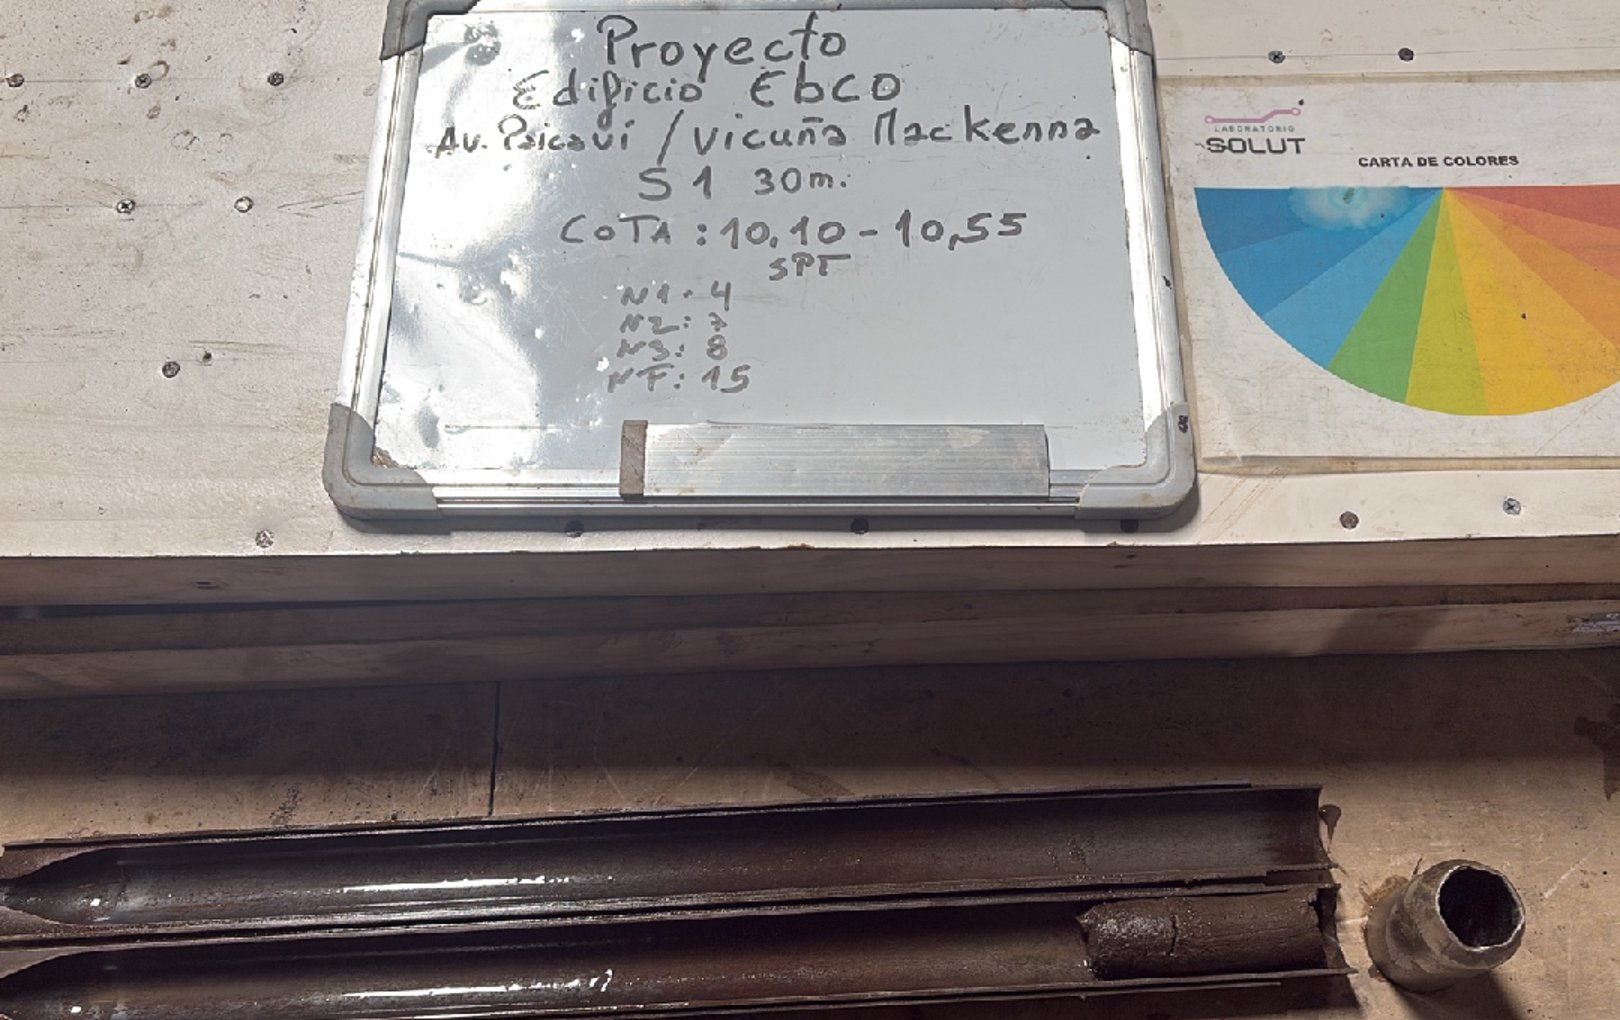 Proyecto
Edificio Ebco
Av. Paicaví / Vicuña Mackenna
S1 30m.
COTA : 10,10 - 10,55
SPT
N1: 4
N2: 7
N3: 8
NF: 15
LABORATORIO
SOLUT
CARTA DE COLORES